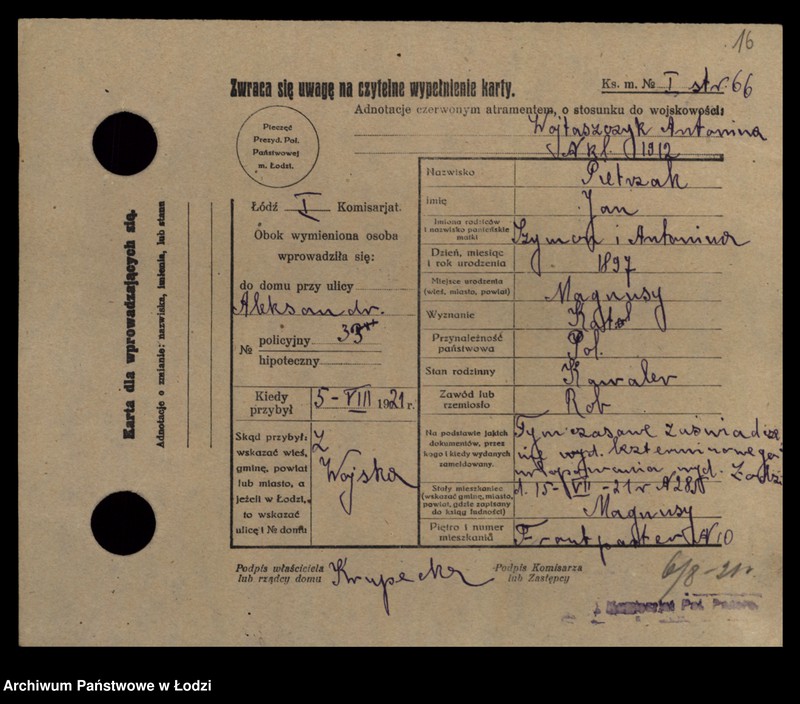 16
Zwraca się uwagę na czytelne wypełnienie karty.
Ks. m. № I str. 66
Adnotacje czerwonym atramentem, o stosunku do wojskowości:
Wojtaszczyk Antonina
1912
Pieczęć
Prezyd. Pol.
Państwowej
m. Łodzi.
Łódź I Komisarjat.
Obok wymieniona osoba
wprowadziła się:
do domu przy ulicy
Aleksandr.
№ policyjny 33
hipoteczny
Kiedy przybył 5-VIII 1921 r.
Skąd przybył:
wskazać wieś,
gminę, powiat
lub miasto, a
jeżeli w Łodzi,
to wskazać
ulicę i № domu
Z
Wojska
Nazwisko Pietrzak
Imię Jan
Imiona rodziców
i nazwisko panieńskie
matki
Szymon i Antonina
Dzień, miesiąc
i rok urodzenia
1897
Miejsce urodzenia
(wieś, miasto, powiat)
Magnusy
Wyznanie Katol
Przynależność
państwowa
Pol.
Stan rodzinny Kawaler
Zawód lub
rzemiosło
Rob
Na podstawie jakich
dokumentów, przez
kogo i kiedy wydanych
zameldowany.
Tymczasowe Zaświadcze
nie wyd. bezterminowego
urlopowania wyd. Łodzi
d. 15-VII-21 r
Stały mieszkaniec
(wskazać gminę, miasto,
powiat, gdzie zapisany
do ksiąg ludności)
Magnusy
Piętro i numer
mieszkania
Front parter № 10
Podpis właściciela
lub rządcy domu
Krupecka
Podpis Komisarza
lub Zastępcy
6/8-21 r.
Komisarjat Pol. Państw.
Karta dla wprowadzających się.
Adnotacje o zmianie: nazwiska, imienia, lub stanu
Archiwum Państwowe w Łodzi